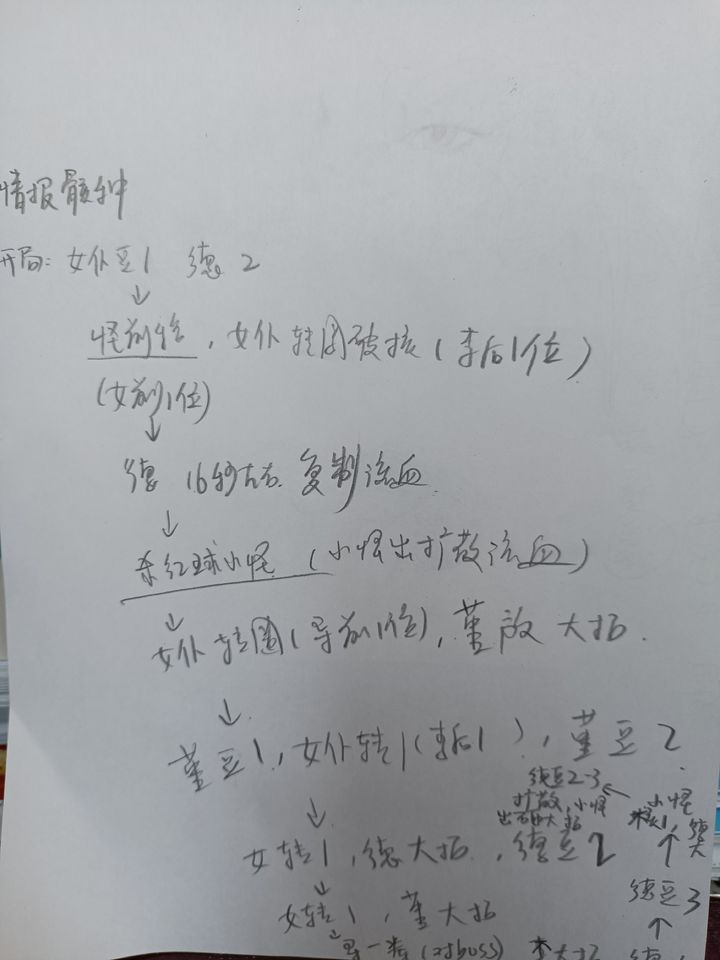 情报骸种
开局: 女仆豆1 德2
↓
怪前摇, 女仆转圈破核(李后1位)
(女前1位)
↓
德 16秒左右 复制流血
↓
杀红球小怪 (小怪出扩散流血)
↓
女仆转圈(导前1位), 堇放大招.
↓
堇豆1, 女仆转1(李后1), 堇豆2
↓
女转1, 德大招, 德豆2
↓
女转1, 堇大招
↓
(对boss) 大招
德豆3
↑
小怪
德大
↑
德豆2-3
扩散, 小怪
←
↑